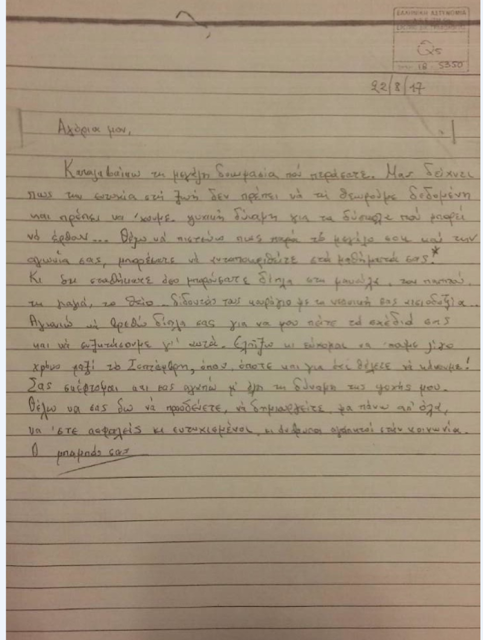 ΕΛΛΗΝΙΚΗ ΑΣΤΥΝΟΜΙΑ
18 5350
22/8/17
Αγόρια μου,
Καταλαβαίνω τη μεγάλη δοκιμασία που περάσατε. Μας δείχνει
πως την ευτυχία στη ζωή δεν πρέπει να τη θεωρούμε δεδομένη
και πρέπει να 'χουμε ψυχική δύναμη για τα δύσκολα που μπορεί
να έρθουν... Θέλω να πιστεύω πως παρά το μεγάλο σοκ και την
αγωνία σας, μπορέσατε να ανταποκριθείτε στα μαθήματά σας*
Κι ότι σταθήκατε όσο μπορούσατε δίπλα στη μανούλα, τον παππού,
τη γιαγιά, το θείο δίδοντάς τους κουράγιο με τη νεανική σας αισιοδοξία...
Αγωνιώ να βρεθώ δίπλα σας για να μου πείτε τα σχέδιά σας
και να συζητήσουμε γι' αυτά. Ελπίζω κι εύχομαι να 'χουμε λίγο
χρόνο μαζί το Σεπτέμβρη, όπου, όποτε και για ό,τι θέλετε να κάνουμε!
Σας σκέφτομαι και σας αγαπώ μ' όλη τη δύναμη της ψυχής μου.
Θέλω να σας δω να προοδεύετε, να δημιουργείτε και πάνω απ' όλα,
να 'στε ασφαλείς κι ευτυχισμένοι, κι άνθρωποι στην κοινωνία.
Ο μπαμπάς σας